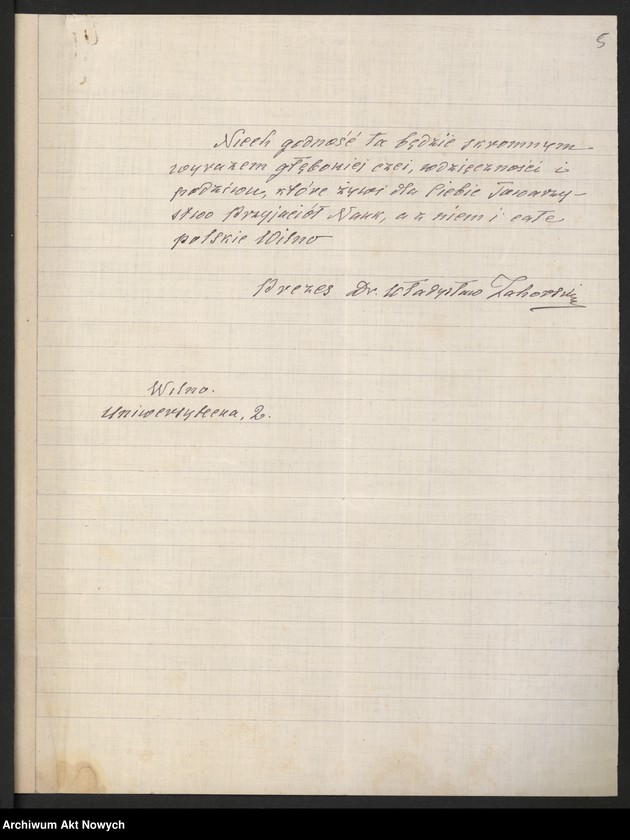 5
Niech godność ta będzie skromnym
wyrazem głębokiej czci, wdzięczności i
podziwu, które żywi dla Ciebie Towarzy-
stwo Przyjaciół Nauk, a z niem i całe
polskie Wilno
Prezes Dr. Władysław Zahorski
Wilno.
Uniwersytecka, 2.
Archiwum Akt Nowych